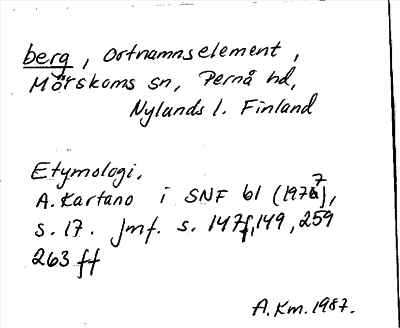 berg, Ortnamnselement,
Mörskoms sn, Pernå hd,
Nylands l. Finland
Etymologi.
A. Kartano i SNF 61 (1977),
s. 17. Jmf. s. 147f, 149, 259
263 ff
A.Km. 1987.